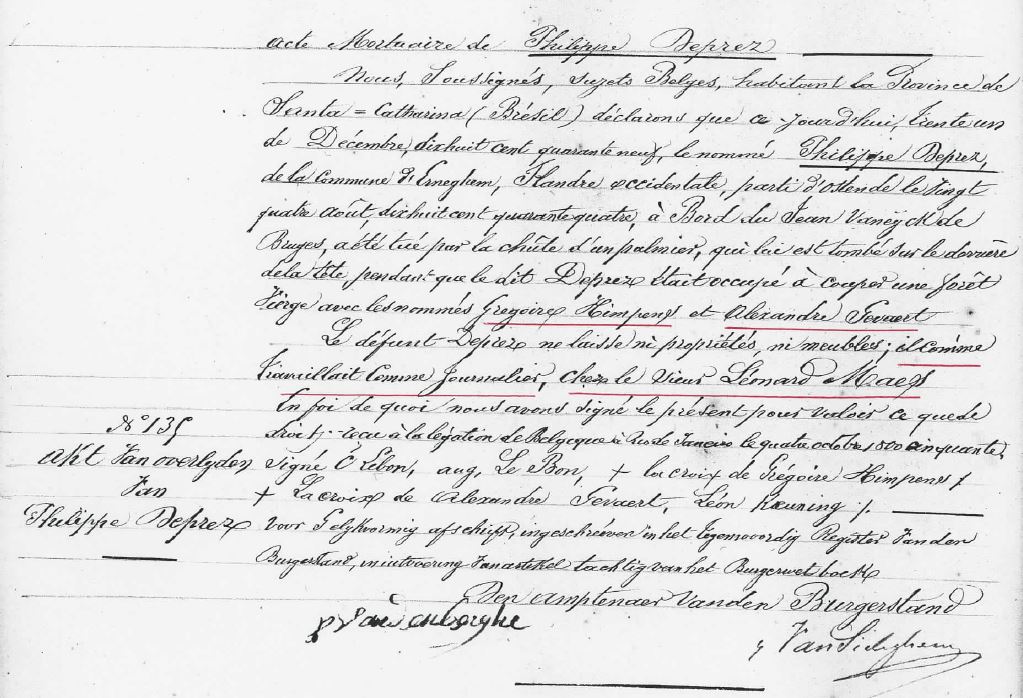 acte Mortuaire de Philippe Deprez
Nous, Soussignés, sujets Belges, habitant la Province de
Santa = Catharina (Brésil) déclarons que ce-jourd'hui, trente un
de Décembre, dixhuit cent quarante neuf, le nommé Philippe Deprez,
de la Commune d'Ernegham, Flandre occidentale, parti d'ostende le Vingt
quatre août, dixhuit cent quarante quatre, à Bord du Jean Vaneÿck de
Bruges, a été tué par la chûte d'un palmier, qui lui est tombé sur le derrière
de la tête, pendant que le dit Deprez était occupé à couper une forêt
Vierge avec les nommés Gregoire Himpens et Alexandre Gevaert
Le défunt Deprez ne laisse ni propriétés, ni meubles; il comme
travaillait Comme Journalier, chez le Sieur Léonard Maes
En foi de quoi nous avons signé le présent pour valoir ce que de
droit; Vue à la légation de Belgique à Rio de Janeiro le quatre octobre 1800 cinquante,
signé C Lebon, aug. Le Bon, + la croix de Grégoire Himpens /
+ La croix de Alexandre Gevaert, Léon /.
voor Gelykvormig afschrift, ingeschreeven in het tegenwoordig Register Van den
Burgerstand, in uitvoering Van artikel tachtig van het Burgerwet boek
Den amptenaer Van den Burgerstand
N° 135
Akt Van overlyden
Van
Philippe Deprez